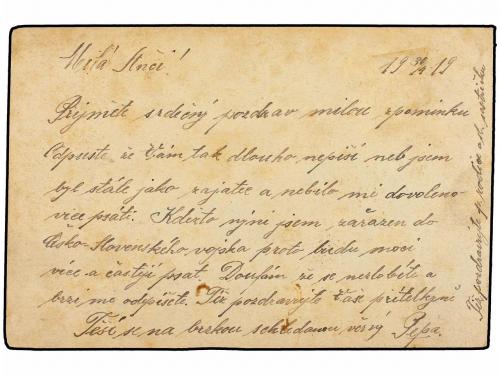 Milá Anči! 19 30/4 19
Přijměte srdečný pozdrav milou zpomínku
Odpuste, že Vám tak dlouho nepíši neb jsem
byl stále jako zajatec a nebilo mi dovoleno
vice psáti. Kdežto nýní jsem zařazen do
Česko-Slovenského vojska proto budu moci
více a častěji psat. Doufám že se nezlobíte a
brzi mě odpíšete. Též pozdravujte Vaš přítelkyně
Těší se na brzkou schledanou, věrný Pepa.
Též pozdravujte sl. rodiče od